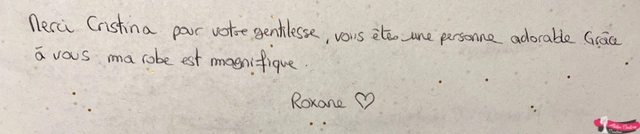 Merci Cristina pour votre gentilesse, vous êtes une personne adorable Grâce
à vous ma robe est magnifique.
Roxane ♡